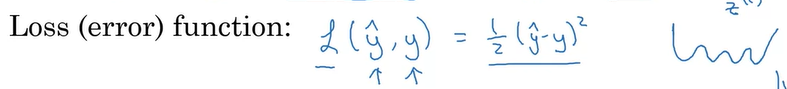 z⁽ⁱ⁾
Loss (error) function: ℒ(ŷ, y) = ½ (ŷ-y)²